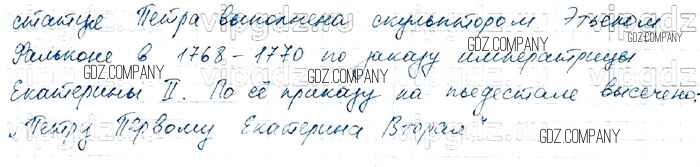 статуе Петра выполнена скульптором Этьеном
Фальконе в 1768-1770 по заказу императрицы
Екатерины II. По её приказу на пьедестале высечено:
„Петру Первому Екатерина Вторая"
GDZ.COMPANY
GDZ.COMPANY
GDZ.COMPANY
GDZ.COMPANY
GDZ.COMPANY